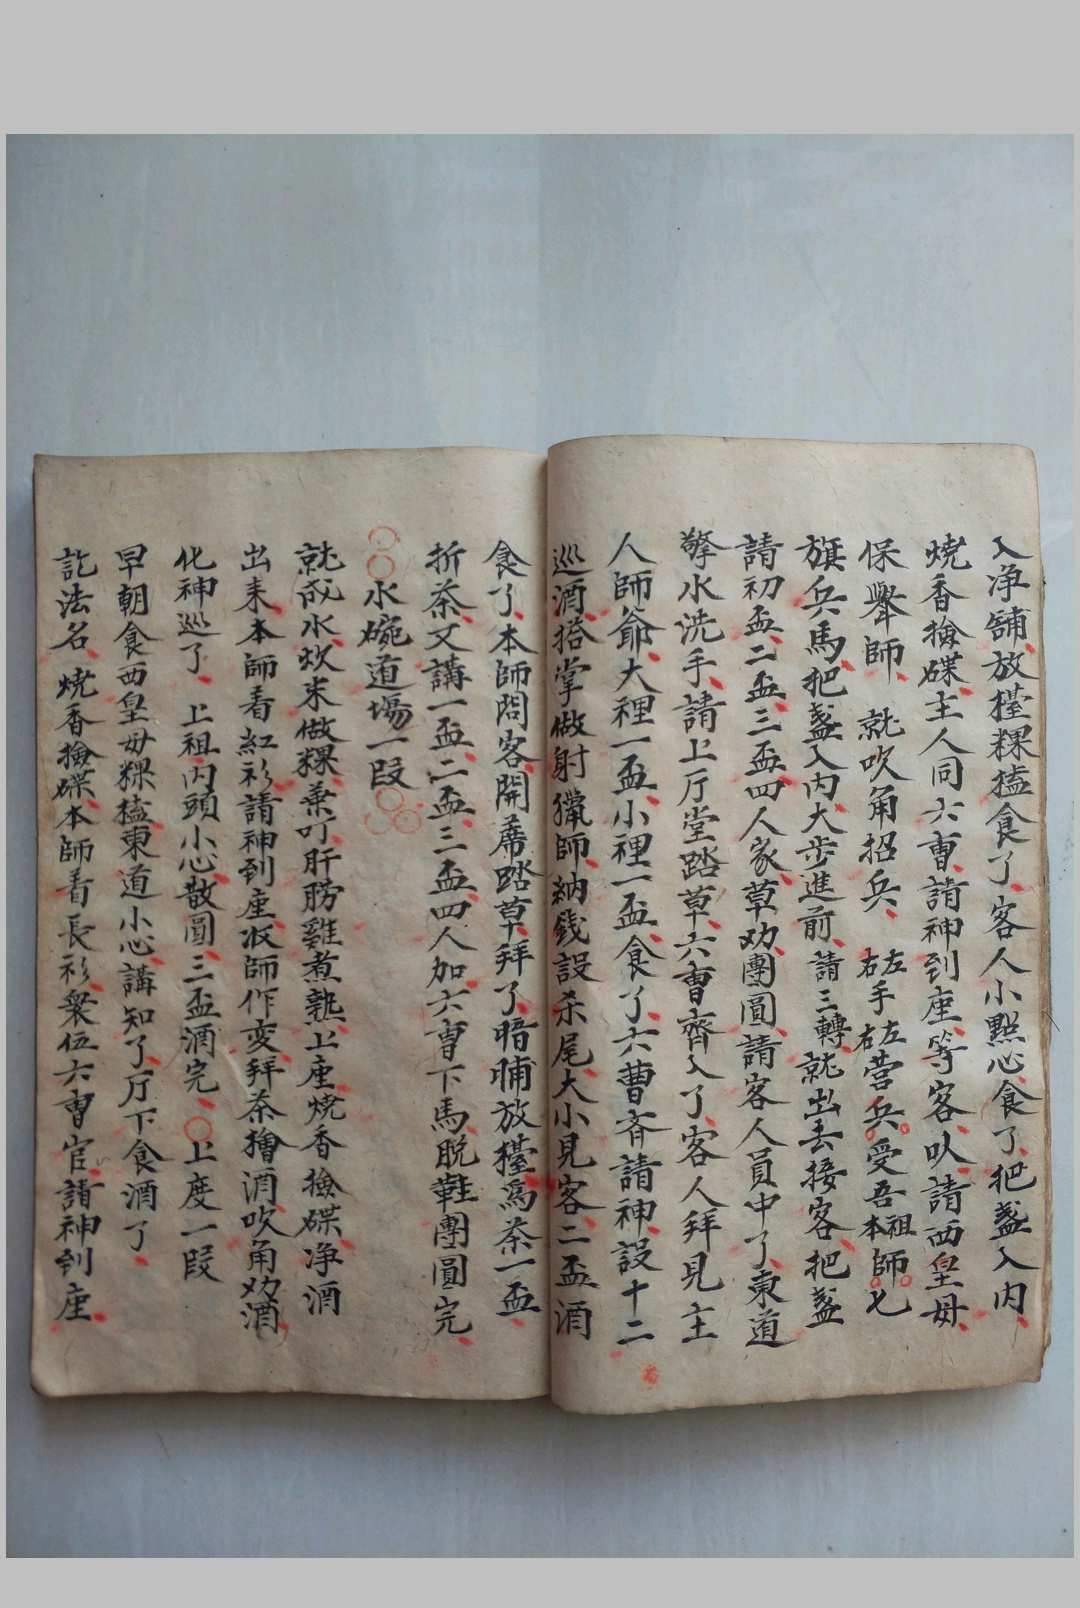 入净舖放檯粿搕食了客人小點心食了把盞入内
燒香撿碟主人同六曹請神到座等客叺請西皇母
保舉師 就吹角招兵 左右手左右营兵受吾祖本師七
旗兵馬把盞入内大步進前請三轉就出去接客把盞
請初盃二盃三盃四人家草劝團圓請客人員中了東道
擎水洗手請上厅堂踏草六曹齊入了客人拜見主
人師爺大裡一盃小裡一盃食了六曹斉請神設十二
巡酒搭掌做射獵師納銭設杀尾大小見客二盃酒
食了本師問客開蓆踏草拜了暗晡放檯爲茶一盃
折茶又講一盃二盃三盃四人加六曹下馬脫鞋團圓完
水碗道場一段
就战水炊米做粿葉叮肝膀雞煮熟上座燒香撿碟净酒
出来本師看紅衫請神到座収師作变拜茶擔酒吹角劝酒
化神巡了 上祖内頭小心散圓三盃酒完 上度一段
早朝食西皇母粿搕東道小心講知了厅下食酒了
訖法名燒香撿碟本師看長衫衆伍六曹官請神到座